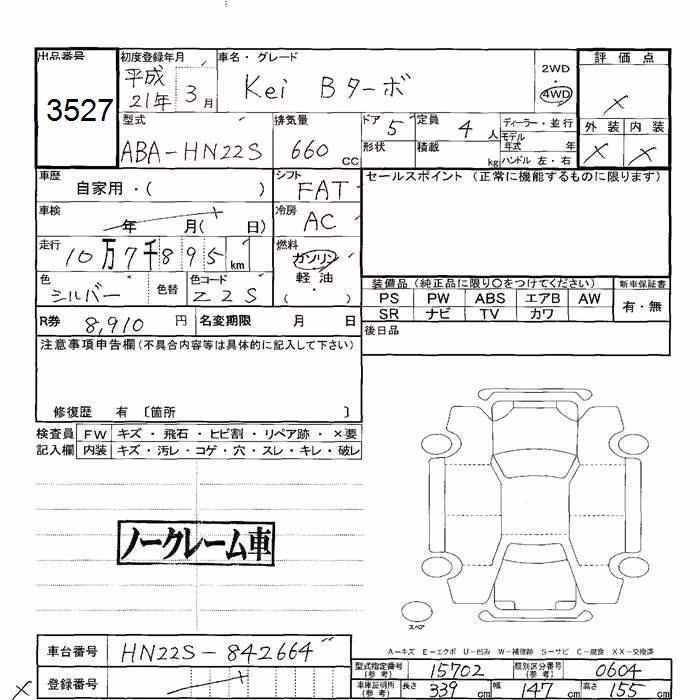 出品番号
3527
初度登録年月
平成
21年 3月
車名・グレード
Kei Bターボ
2WD
4WD
評価点
×
外装 内装
× ×
型式
ABA-HN22S
排気量
660 cc
ドア 5
定員 4 人
形状
積載 kg
ディーラー・並行
モデル
年式 年
ハンドル 左・右
車歴
自家用・( )
シフト
FAT
車検
年 月( 日)
冷房
AC
走行
10万7千895 km
燃料
ガソリン
軽油
( ・ )
色
シルバー
色替
色コード
Z2S
R券 8,910 円
名変期限 月 日
セールスポイント (正常に機能するものに限ります)
装備品 (純正品に限り○をつけてください)
新車保証書
PS PW ABS エアB AW
SR ナビ TV カワ
有・無
後日品
注意事項申告欄(不具合内容等は具体的に記入して下さい)
修復歴 有 〔箇所 〕
検査員
記入欄
FW キズ・飛石・ヒビ割・リペア跡・×要
内装 キズ・汚レ・コゲ・穴・スレ・キレ・破レ
ノークレーム車
スペア
A-キズ E-エクボ U-凹み W-補修跡 S-サビ C-腐食 XX-交換済
車台番号
HN22S-842664
登録番号
×
型式指定番号
(参考)
15702
類別区分番号
(参考)
0604
車庫証明用
(参考)
長さ 339 cm 幅 147 cm 高さ 155 cm